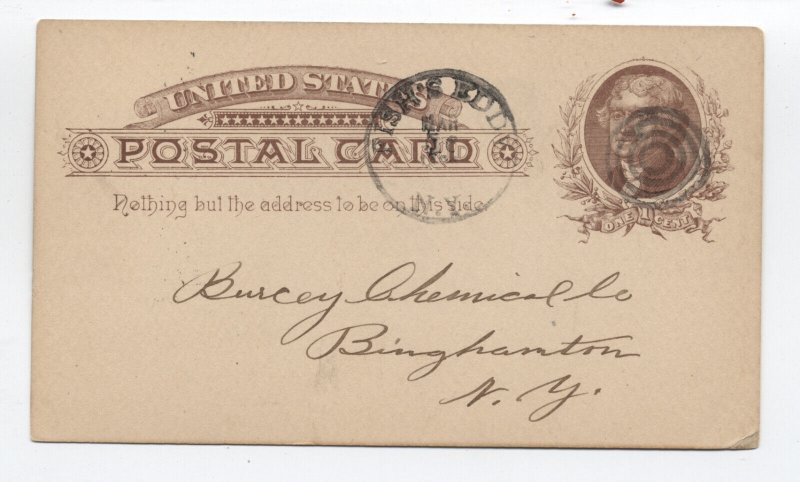 UNITED STATES
POSTAL CARD
Nothing but the address to be on this side.
FISH'S EDDY
MAR
N.Y.
ONE 1 CENT
Burcey Chemical Co
Binghamton
N. Y.